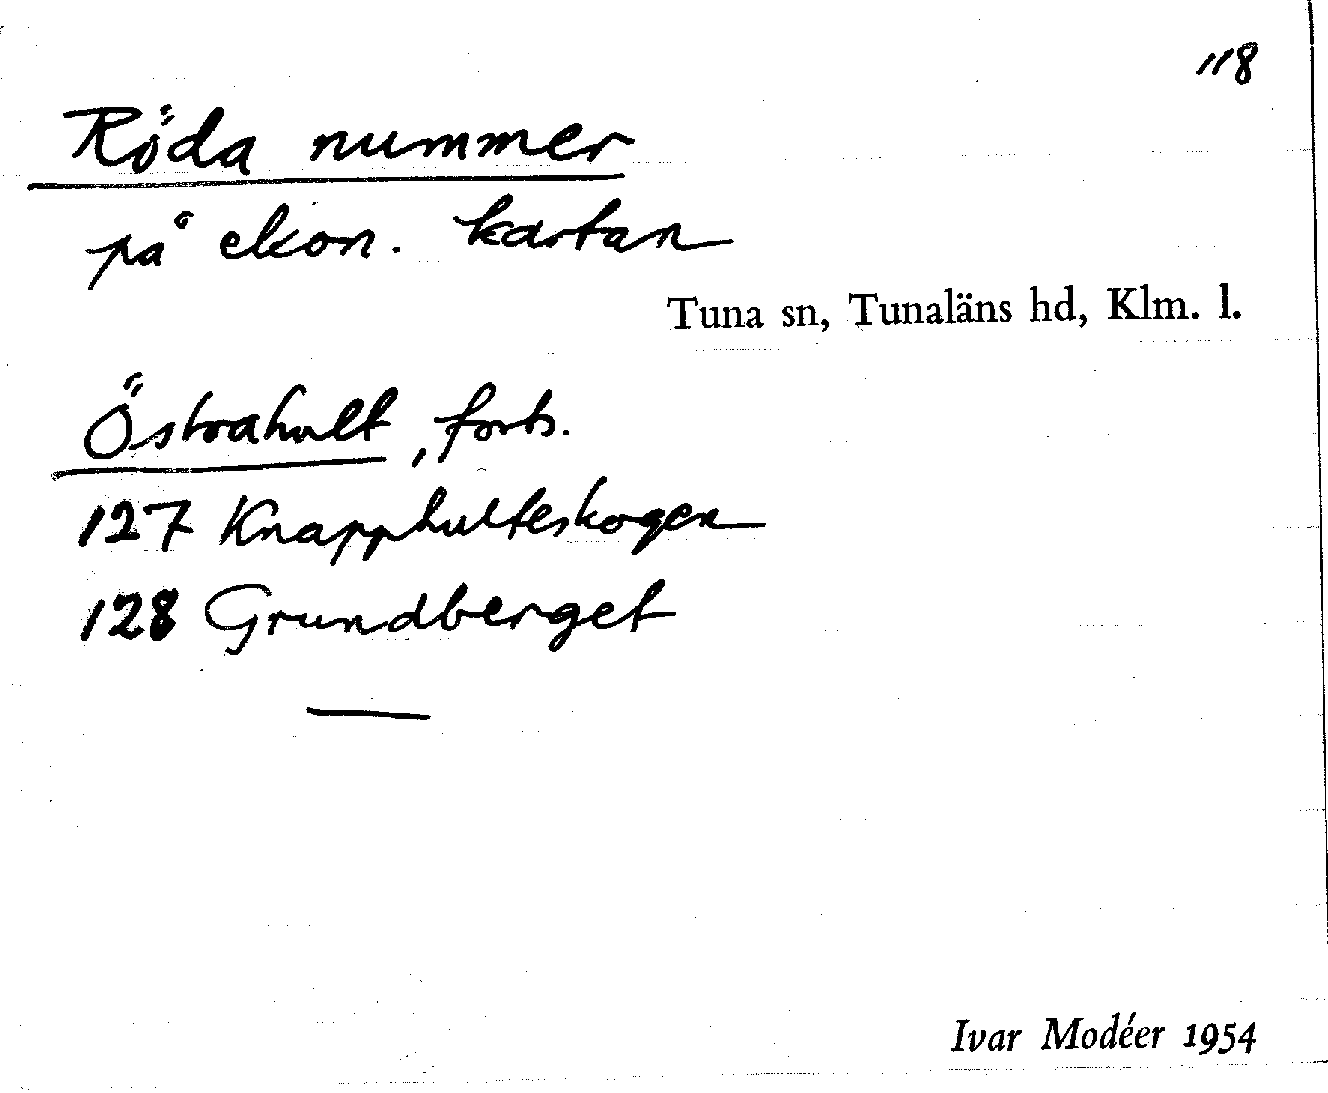 118
Röda nummer
på ekon. kartan
Tuna sn, Tunaläns hd, Klm. l.
Östrahult, forts.
127 Knapphulteskogen
128 Grundberget
Ivar Modéer 1954